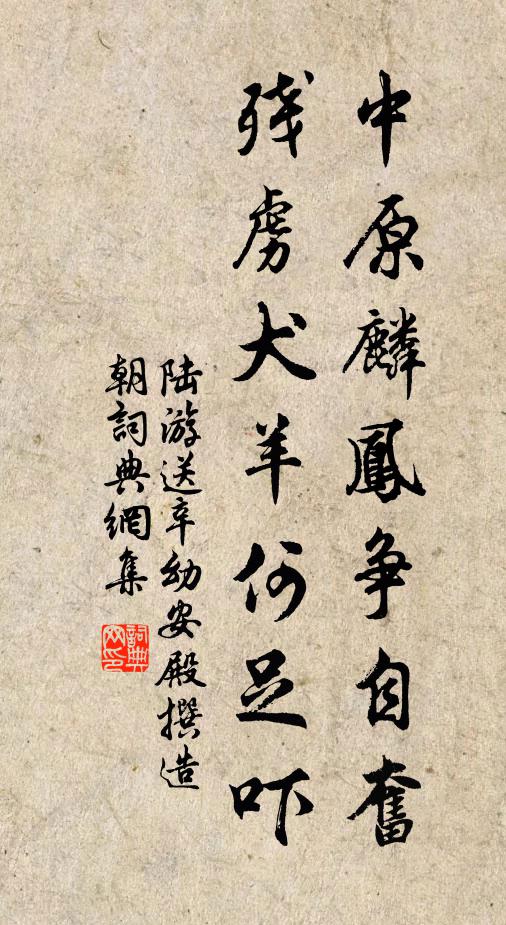 中原麟鳳争自奮
残虜犬羊何足吓
陆游送辛幼安殿撰造
朝詞典網集
詞典
网印